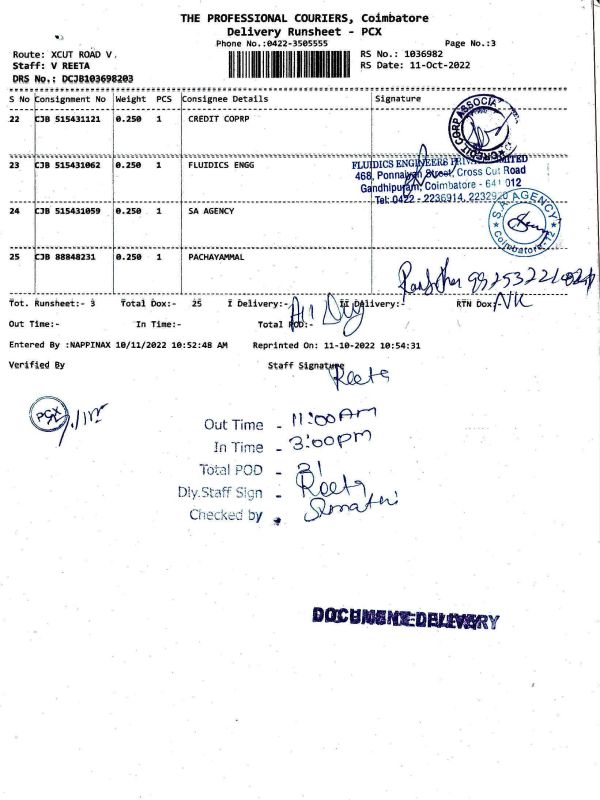 THE PROFESSIONAL COURIERS, Coimbatore
Delivery Runsheet - PCX
Phone No.:0422-3505555 Page No.:3
Route: XCUT ROAD V. RS No.: 1036982
Staff: V REETA RS Date: 11-Oct-2022
DRS No.: DCJB103698203
S No Consignment No Weight PCS Consignee Details Signature
22 CJB 515431121 0.250 1 CREDIT COPRP
CREDIT CORP ASSOCIA
23 CJB 515431062 0.250 1 FLUIDICS ENGG
FLUIDICS ENGINEERS PRIVATE LIMITED
468, Ponnaiyan Street, Cross Cut Road
Gandhipuram, Coimbatore - 641 012
Tel: 0422 - 2236914, 2232920
24 CJB 515431059 0.250 1 SA AGENCY
S.A. AGENCY
Coimbatore-12
25 CJB 88848231 0.250 1 PACHAYAMMAL
Tot. Runsheet:- 3 Total Dox:- 25 I Delivery:- II Delivery:- RTN Dox:- NK
All Dly
Out Time:- In Time:- Total POD:-
Entered By :NAPPINAX 10/11/2022 10:52:48 AM Reprinted On: 11-10-2022 10:54:31
Verified By Staff Signature
Reeta
PCX
Out Time - 11:00AM
In Time - 3:00pm
Total POD - 31
Dly.Staff Sign - Reeta
Checked by -
DOCUMENT DELIVERY